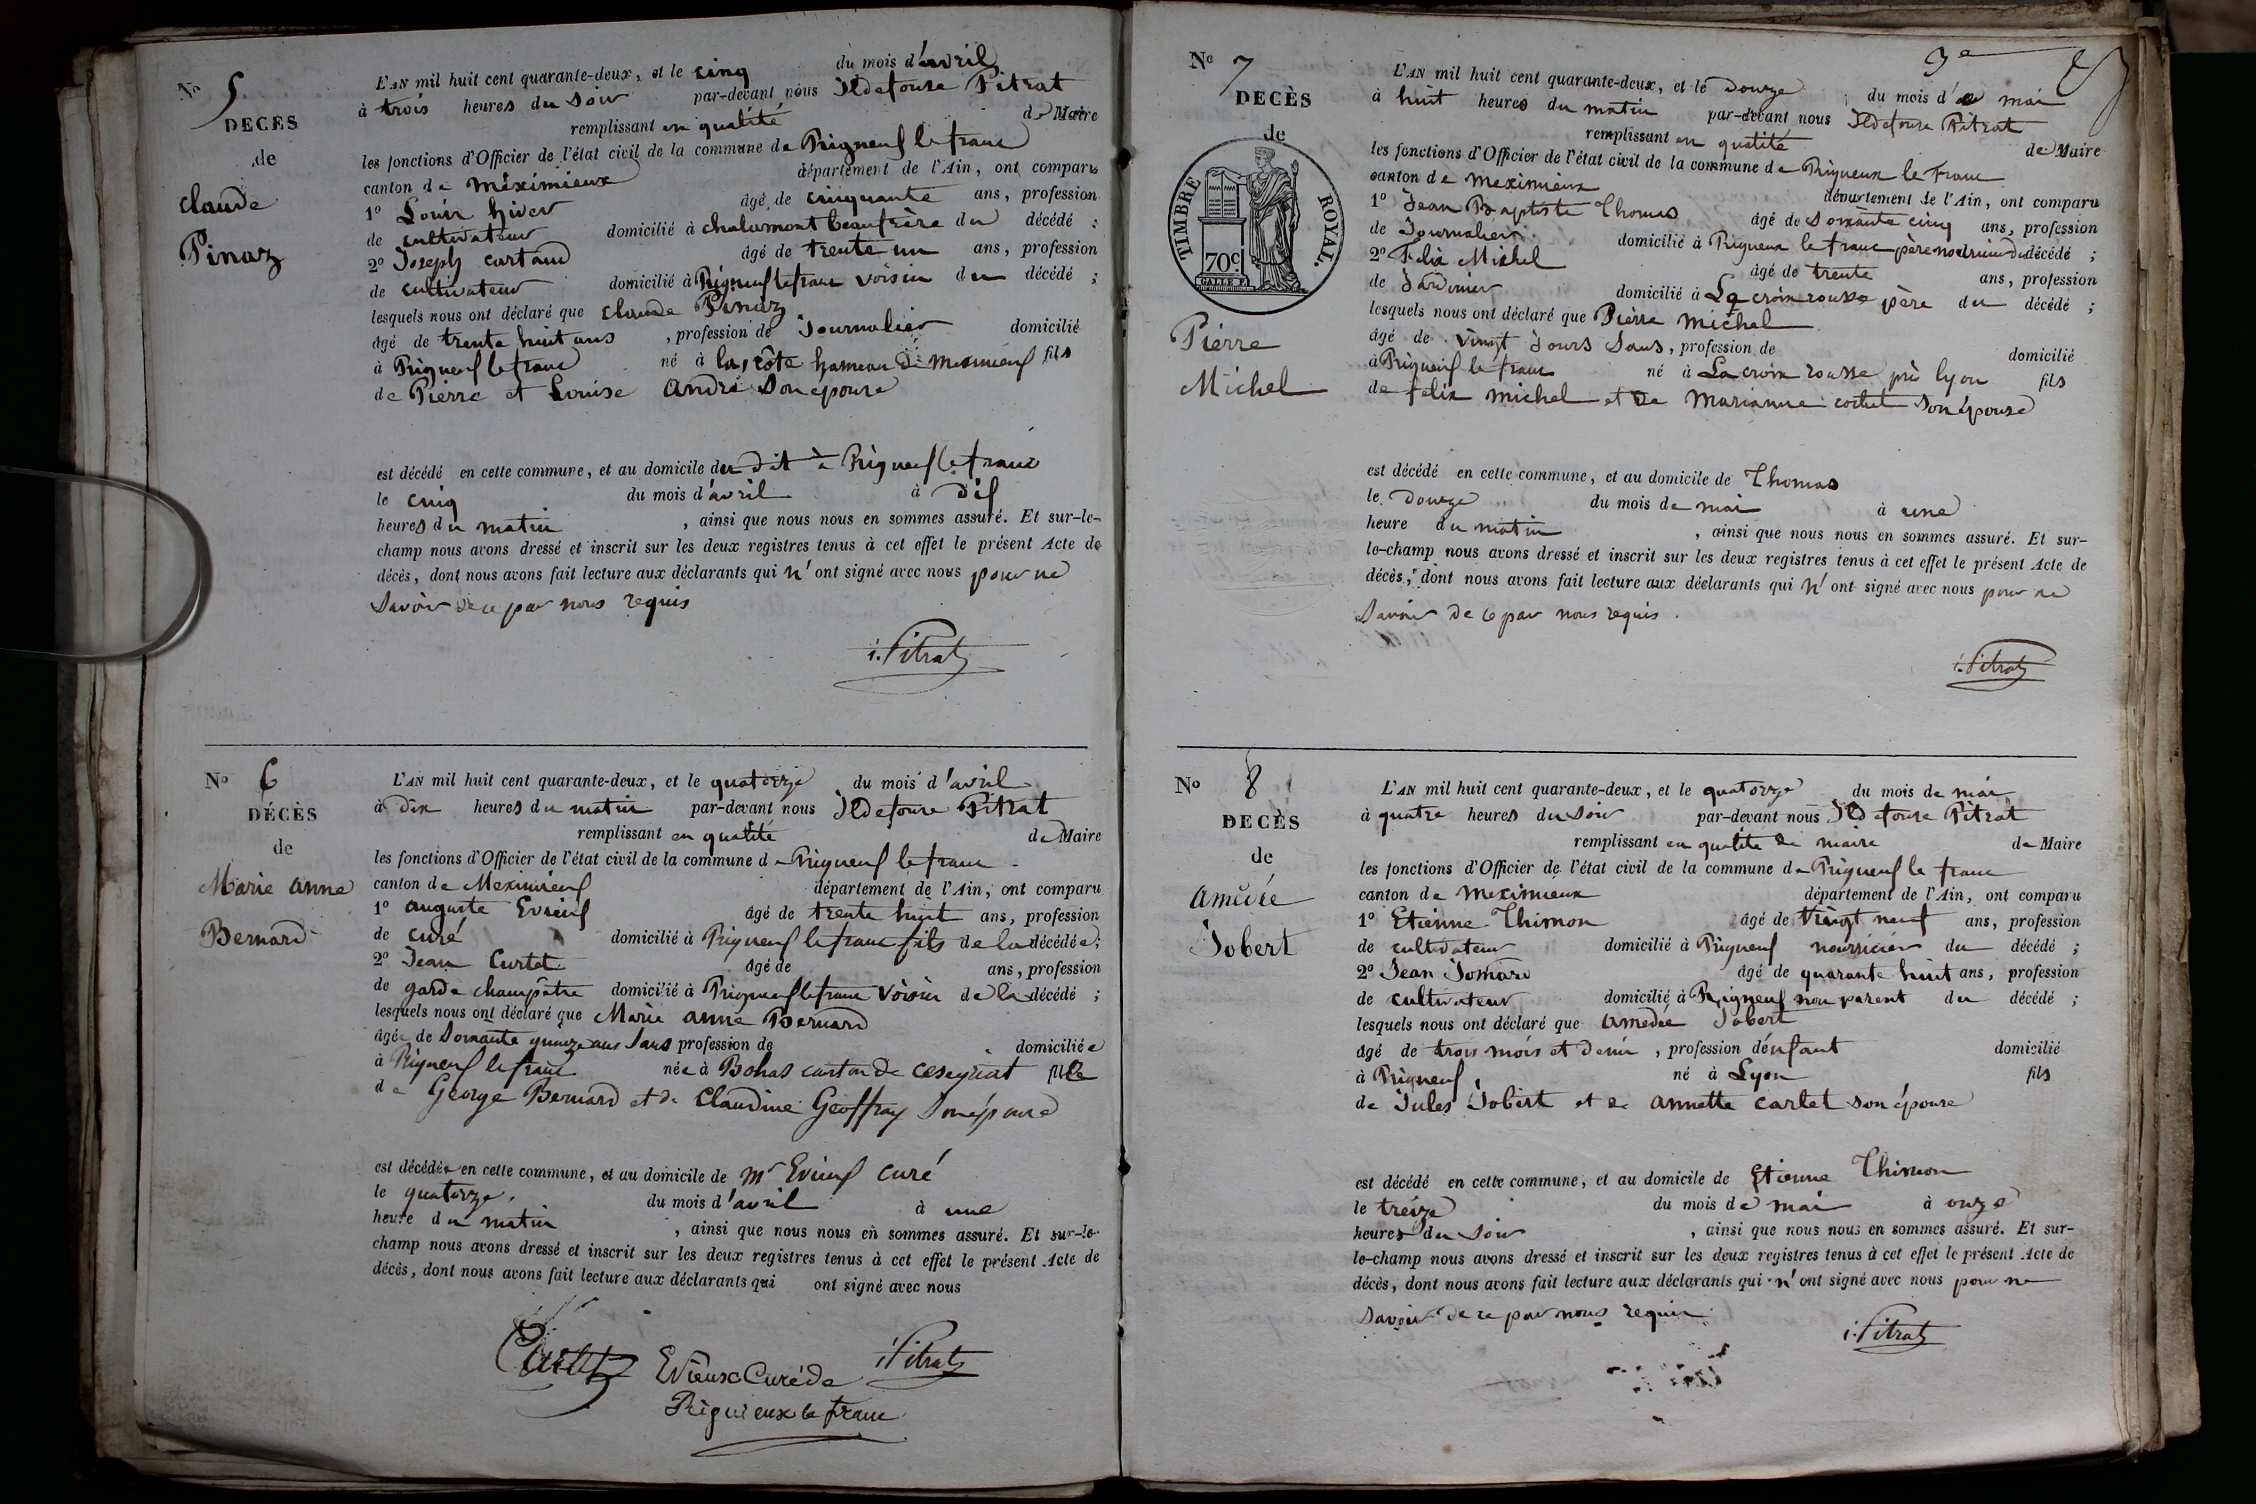 No 5
DECES
de
claude
Pinaz
L'AN mil huit cent quarante-deux, et le cinq du mois d'avril
à trois heures du soir par-devant nous Ildefonse Pitrat
remplissant en qualité de Maire
les fonctions d'Officier de l'état civil de la commune de Rigneuf le franc
canton de Méximieux département de l'Ain, ont comparu
1º Louis hiver âgé de cinquante ans, profession
de cultivateur domicilié à chalamont beaufrère du décédé ;
2º Joseph cartand âgé de trente un ans, profession
de cultivateur domicilié à Rigneuf le franc voisin du décédé ;
lesquels nous ont déclaré que claude Pinaz
âgé de trente huit ans , profession de Journalier domicilié
à Rigneuf le franc né à la côte hameau de fils
de Pierre et Louise André son épouse
est décédé en cette commune, et au domicile du dit à Rigneuf le franc
le cinq du mois d'avril à dix
heures du matin , ainsi que nous nous en sommes assuré. Et sur-le-
champ nous avons dressé et inscrit sur les deux registres tenus à cet effet le présent Acte de
décès, dont nous avons fait lecture aux déclarants qui n'ont signé avec nous pour ne
savoir de ce par nous requis
i. Pitrat
No 6
DÉCÈS
de
Marie anne
Bernard
L'AN mil huit cent quarante-deux, et le quatorze du mois d'avril
à dix heures du matin par-devant nous Ildefonse Pitrat
remplissant en qualité de Maire
les fonctions d'Officier de l'état civil de la commune de Rigneuf le franc
canton de Meximieuf département de l'Ain, ont comparu
1º auguste Evieuf âgé de trente huit ans, profession
de curé domicilié à Rigneuf le franc fils de la décédée ;
2º Jean Curtet âgé de ans, profession
de garde champêtre domicilié à Rigneuf le franc voisin de la décédé ;
lesquels nous ont déclaré que Marie anne Bernard
âgée de soixante quinze ans sans profession de domiciliée
à Rigneuf le franc née à Bohas canton de ceseyriat fille
de George Bernard et de Claudine Geoffray son épouse
est décédée en cette commune, et au domicile de Mr Evieuf curé
le quatorze du mois d'avril à une
heure du matin , ainsi que nous nous en sommes assuré. Et sur-le-
champ nous avons dressé et inscrit sur les deux registres tenus à cet effet le présent Acte de
décès, dont nous avons fait lecture aux déclarants qui ont signé avec nous
Curtet Evieux Curé de i. Pitrat
Rigneux le franc
3e
No 7
DECÈS
de
TIMBRE ROYAL.
70c
Pierre
Michel
L'AN mil huit cent quarante-deux, et le Douze du mois de mai
à huit heures du matin par-devant nous Ildefonse Pitrat
remplissant en qualité de Maire
les fonctions d'Officier de l'état civil de la commune de Rigneux le franc
canton de Meximieux département de l'Ain, ont comparu
1º Jean Baptiste Thomas âgé de soixante cinq ans, profession
de Journalier domicilié à Rigneux le franc père nourricier du décédé ;
2º Felix Michel âgé de trente ans, profession
de Jardinier domicilié à La croix rousse père du décédé ;
lesquels nous ont déclaré que Pierre Michel
âgé de vingt Jours sans, profession de domicilié
à Rigneuf le franc né à La croix rousse près lyon fils
de felix michel et de Marianne son épouse
est décédé en cette commune, et au domicile de Thomas
le Douze du mois de mai à une
heure du matin , ainsi que nous nous en sommes assuré. Et sur-
le-champ nous avons dressé et inscrit sur les deux registres tenus à cet effet le présent Acte de
décès, dont nous avons fait lecture aux déclarants qui n'ont signé avec nous pour ne
savoir de ce par nous requis.
i. Pitrat
No 8
DECÈS
de
amédée
Jobert
L'AN mil huit cent quarante-deux, et le quatorze du mois de mai
à quatre heures du soir par-devant nous Ildefonse Pitrat
remplissant en qualité de maire de Maire
les fonctions d'Officier de l'état civil de la commune de Rigneuf le franc
canton de Meximieux département de l'Ain, ont comparu
1º Etienne Thimon âgé de vingt neuf ans, profession
de cultivateur domicilié à Rigneuf nourricier du décédé ;
2º Jean Jomard âgé de quarante huit ans, profession
de cultivateur domicilié à Rigneuf non parent du décédé ;
lesquels nous ont déclaré que amédée Jobert
âgé de trois mois et demi , profession d'enfant domicilié
à Rigneuf né à Lyon fils
de Jules Jobert et de annette cartet son épouse
est décédé en cette commune, et au domicile de Etienne Thimon
le treize du mois de mai à onze
heures du soir , ainsi que nous nous en sommes assuré. Et sur-
le-champ nous avons dressé et inscrit sur les deux registres tenus à cet effet le présent Acte de
décès, dont nous avons fait lecture aux déclarants qui n'ont signé avec nous pour ne
savoir de ce par nous requis
i. Pitrat